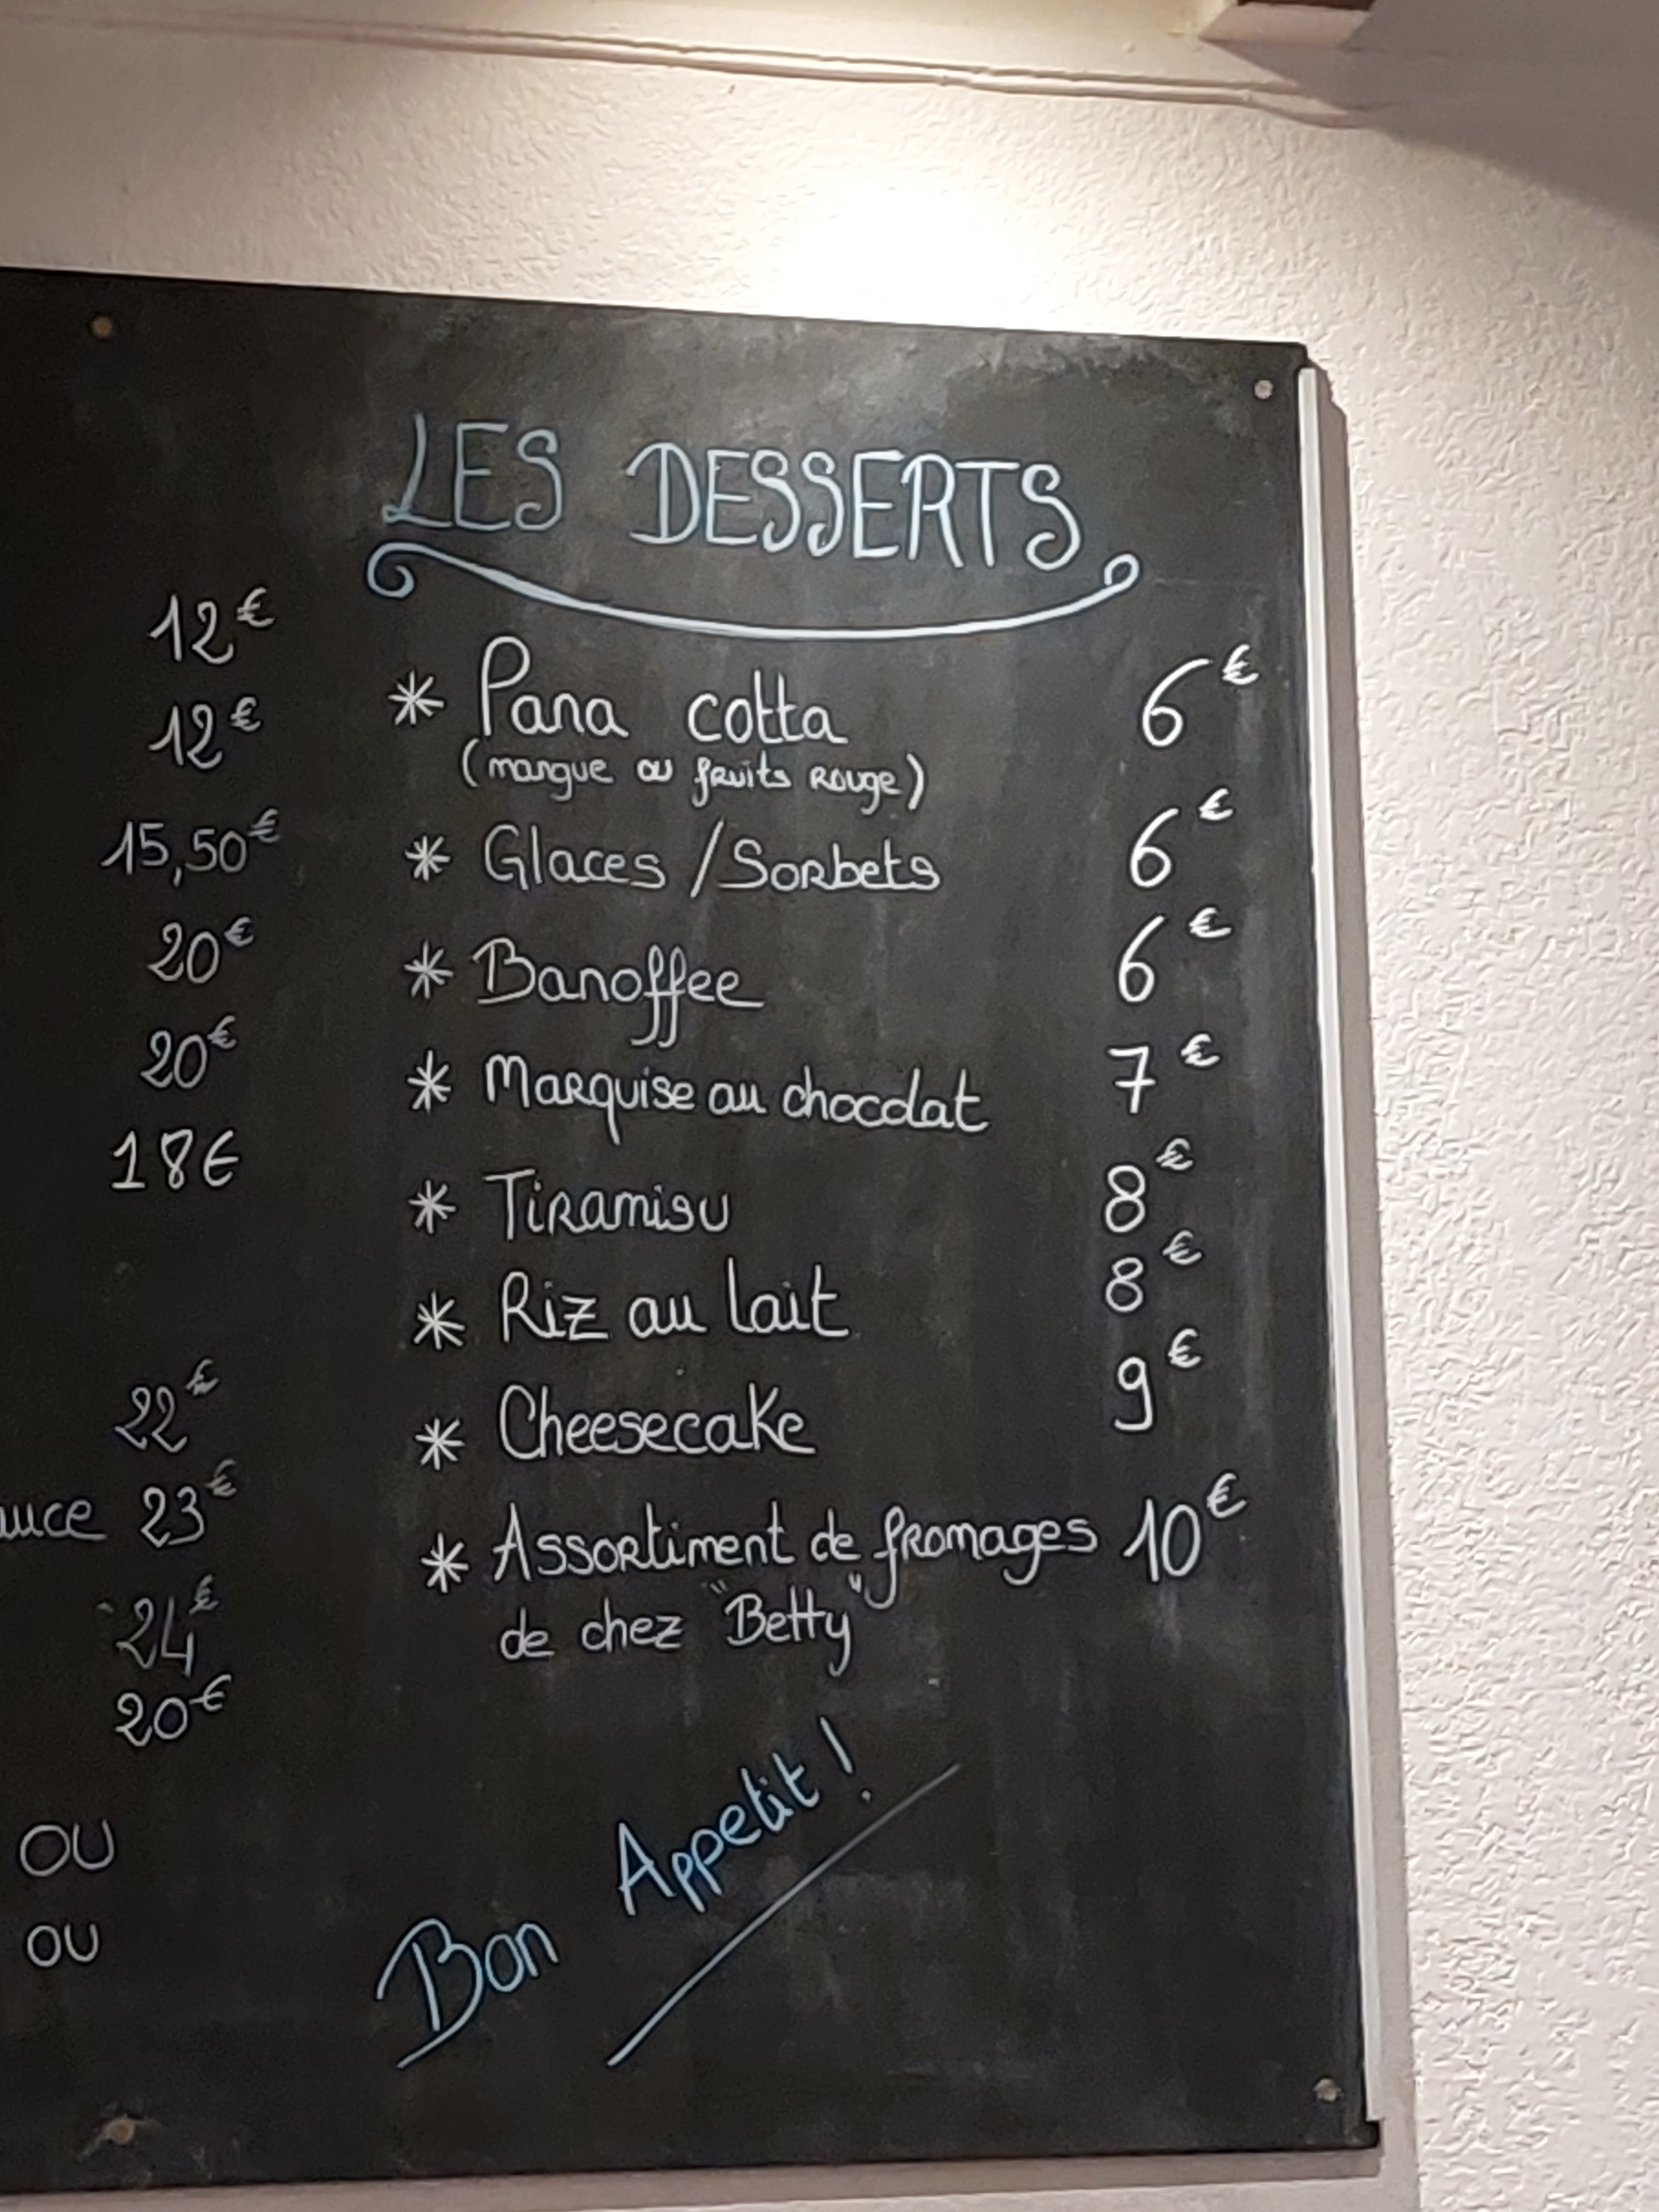 12€
12€
15,50€
20€
20€
18€
22€
23€
24€
20€
OU
OU
LES DESSERTS
* Pana cotta 6€
(mangue ou fruits rouge)
* Glaces / Sorbets 6€
* Banoffee 6€
* Marquise au chocolat 7€
* Tiramisu 8€
* Riz au lait 8€
* Cheesecake 9€
* Assortiment de fromages 10€
de chez "Betty"
Bon Appetit !